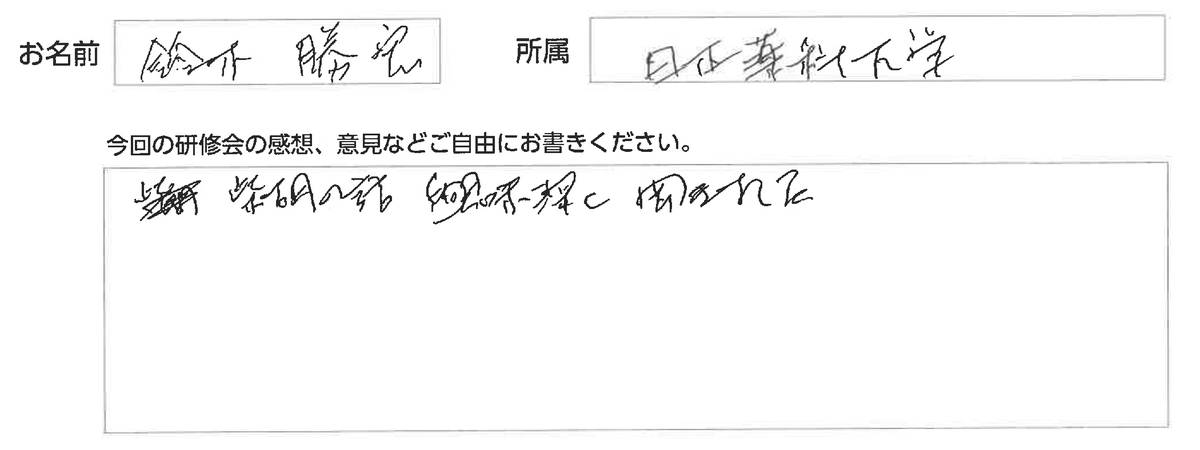 お名前 鈴木 勝宏 所属 日本薬科大学
今回の研修会の感想、意見などご自由にお書きください。
柴胡の話 興味深く